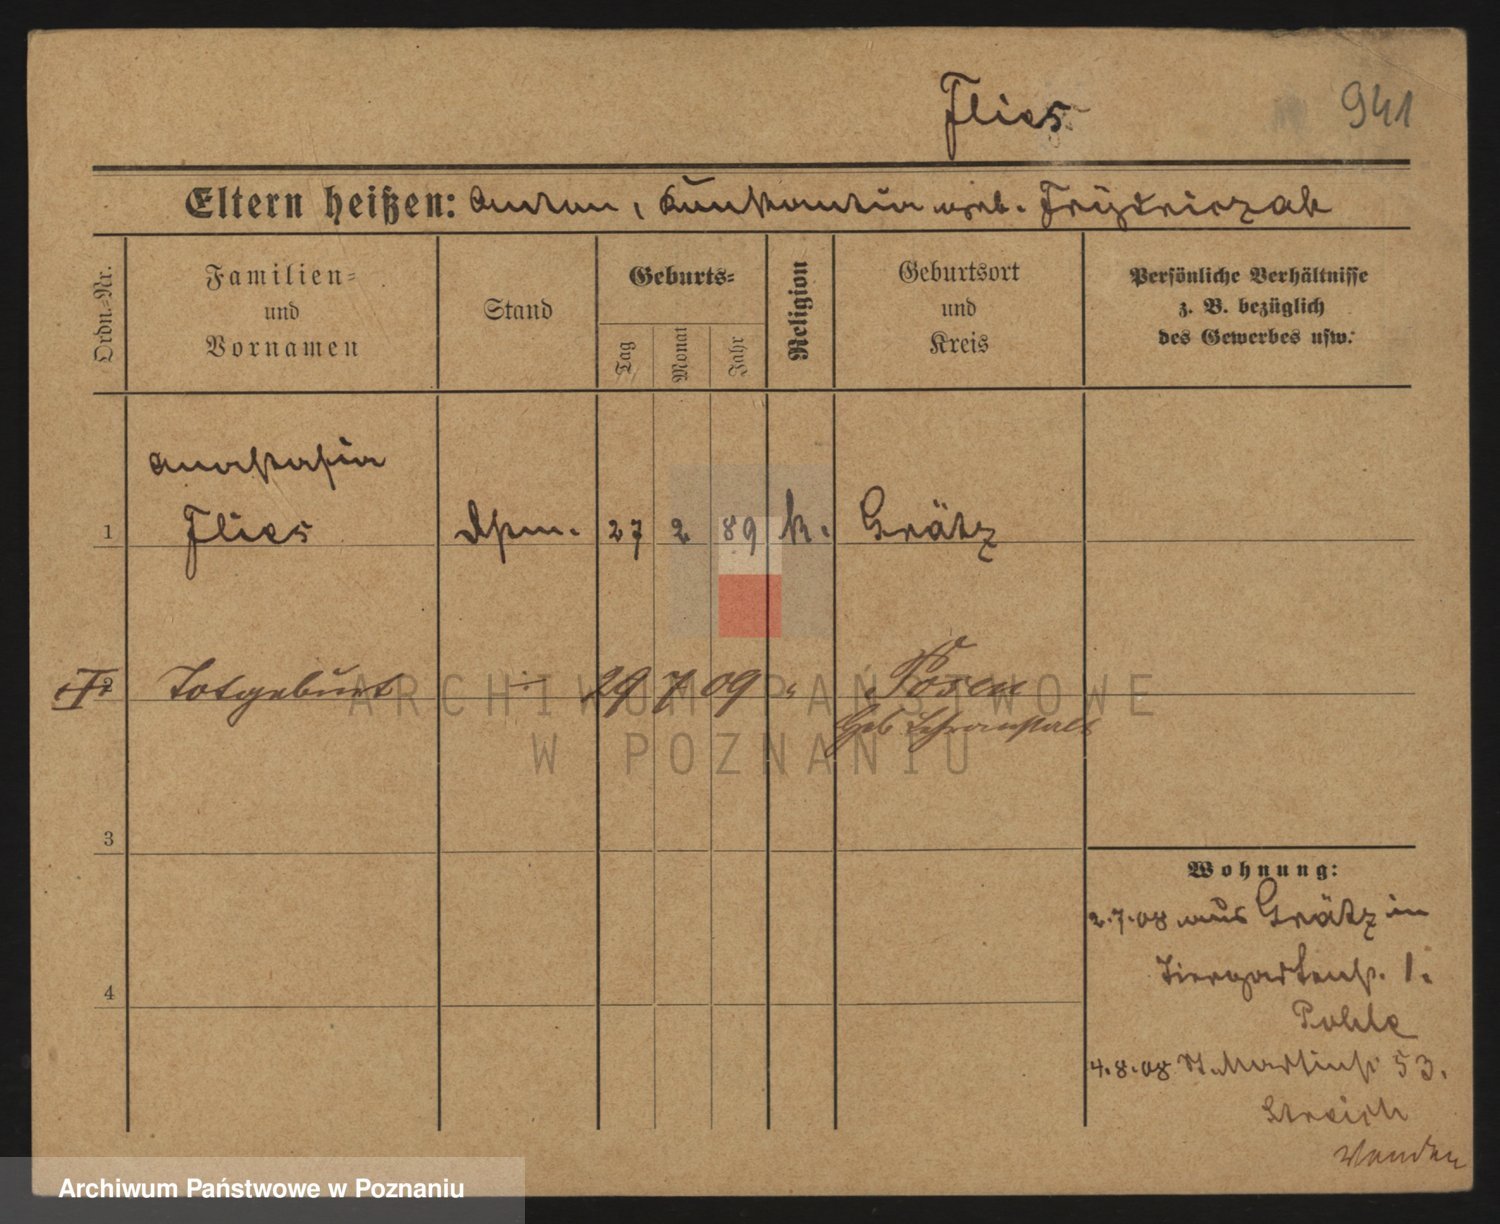 Flies 941
Eltern heißen: Anton, Konstantia geb. Frÿdrieczak
Ordn.-Nr.
Familien-
und
Vornamen
Stand
Geburts-
Tag
Monat
Jahr
Religion
Geburtsort
und
Kreis
Persönliche Verhältnisse
z. B. bezüglich
des Gewerbes usw.
Anastasia
1 Flies 27 2 89 k. Grätz
2 Totgeburt ÷ 29 7 09 " Posen
Geb Lehranstalt
3
4
Wohnung:
2.7.08 aus Grätz in
Tiergartenst. 1.
Pohle
4.8.08 St. Martinst 53.
ARCHIWUM PAŃSTWOWE
W POZNANIU
Archiwum Państwowe w Poznaniu